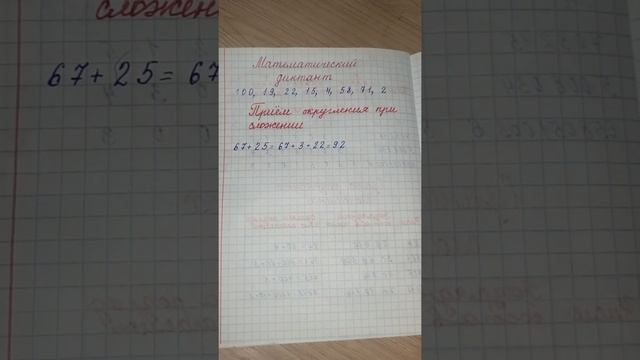 Математический
диктант
100, 19, 22, 15, 4, 58, 71, 2
Приём округления при
сложении
67+25=67+3+22=92